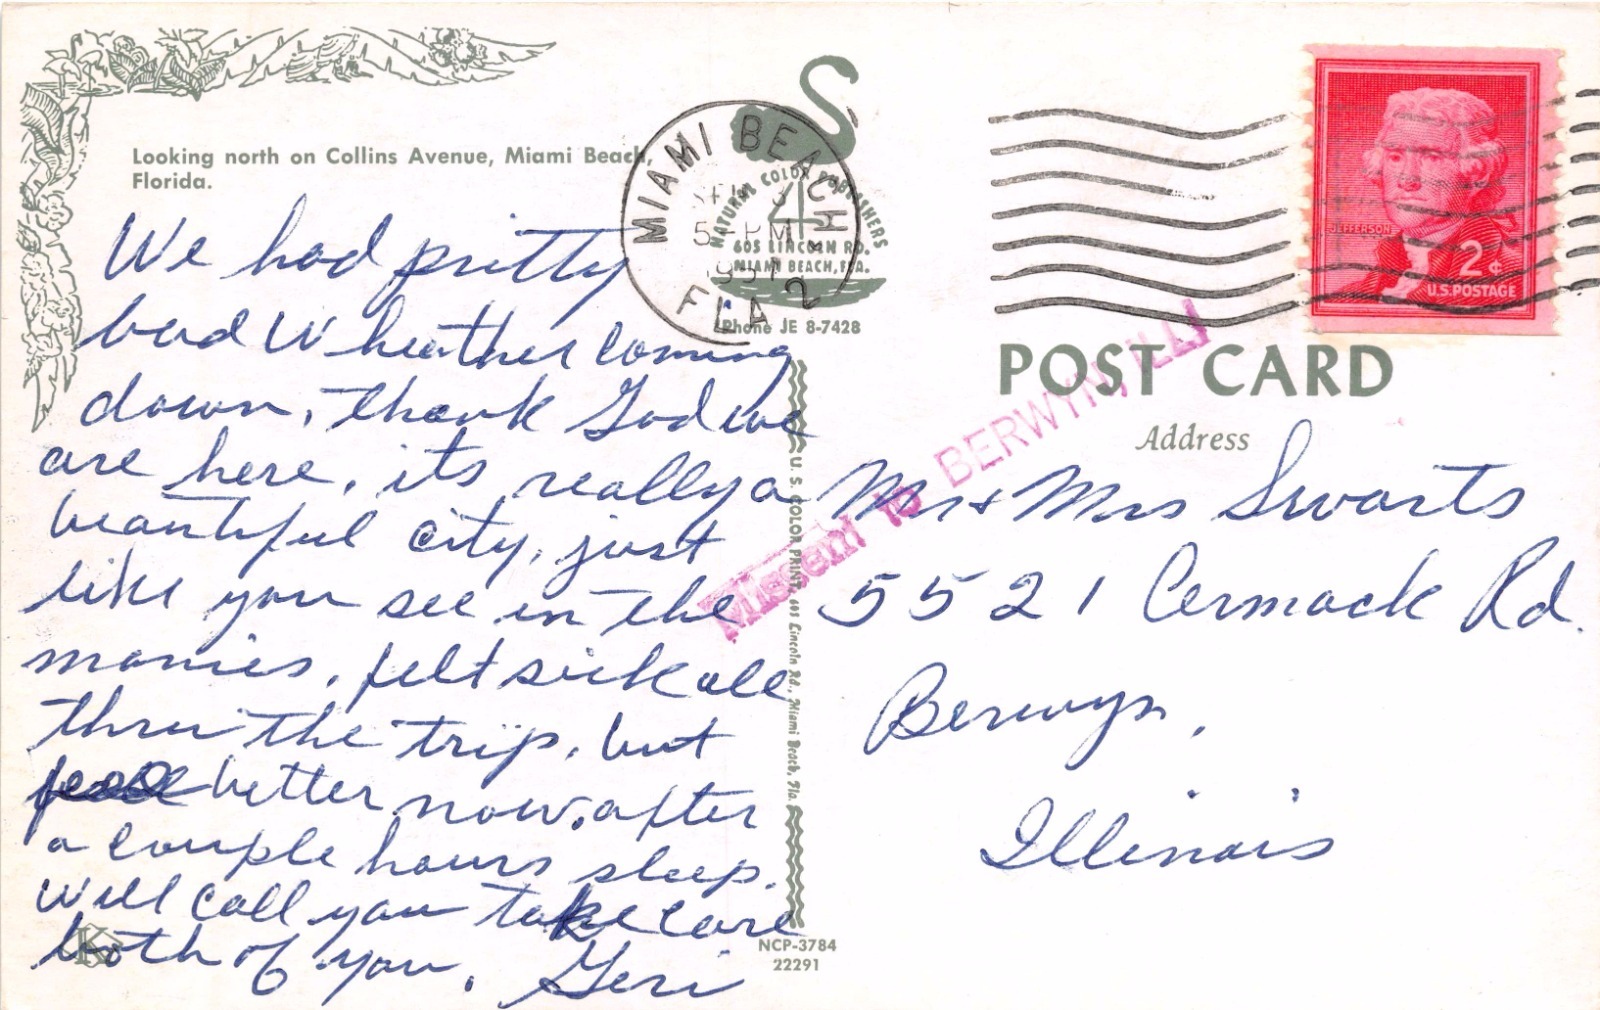 Looking north on Collins Avenue, Miami Beach,
Florida.
We had pretty
bad Wheather coming
down, thank God we
are here, its really a
beautiful city, just
like you see in the
movies, felt sick all
thru the trip, but
feel better now, after
a couple hours sleep.
Will call you take care
both of you, Geri
K
MIAMI BEACH
5-PM
FLA 2
NATURAL COLOR PUBLISHERS
605 LINCOLN RD.
MIAMI BEACH, FLA.
Phone JE 8-7428
U.S. COLOR PRINT, 605 Lincoln Rd., Miami Beach, Fla.
NCP-3784
22291
JEFFERSON
2¢
U.S. POSTAGE
POST CARD
Address
Missent to BERWYN, ILL
Mr + Mrs Swarts
5521 Cermack Rd.
Berwyn,
Illinois